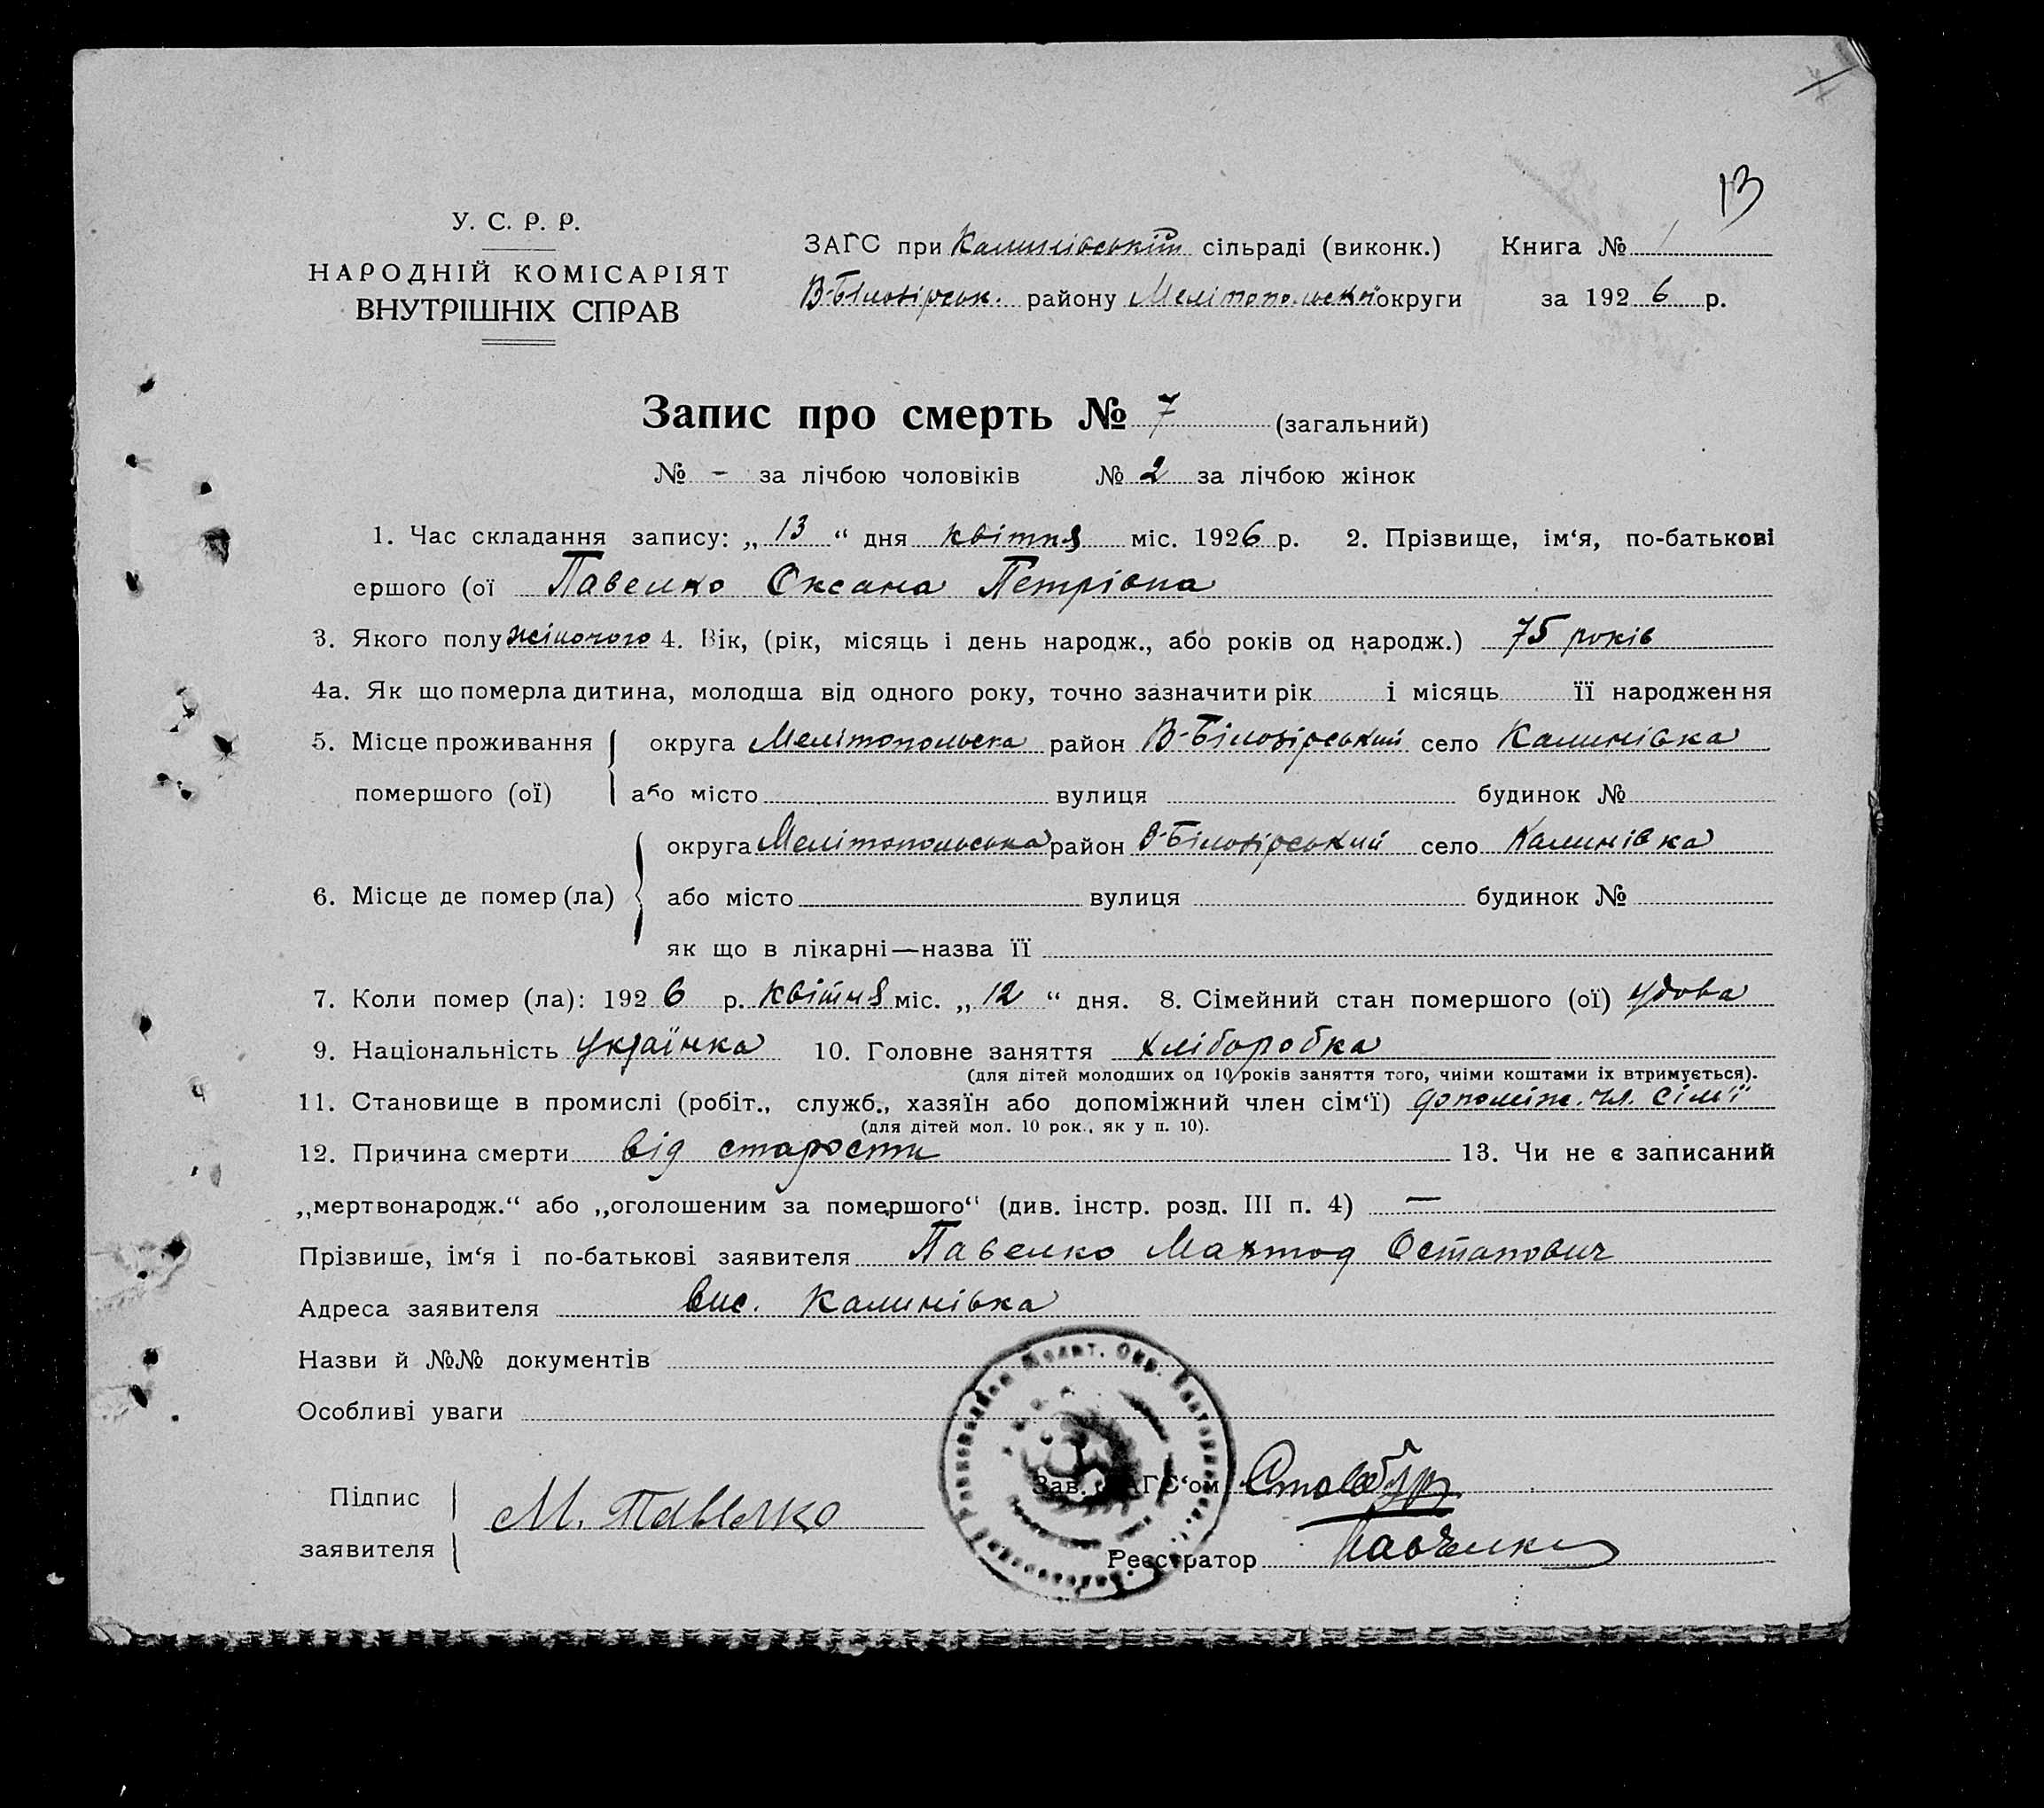 13
У. С. Р. Р.
НАРОДНІЙ КОМІСАРІЯТ
ВНУТРІШНІХ СПРАВ
ЗАГС при Калинівській сільраді (виконк.) Книга № 1
В-Білозірськ. району Мелітопольської округи за 1926 р.
Запис про смерть № 7 (загальний)
№ - за лічбою чоловіків № 2 за лічбою жінок
1. Час складання запису: „13“ дня квітня міс. 1926 р. 2. Прізвище, ім‘я, по-батькові
ершого (ої Павелко Оксана Петрівна
3. Якого полу жіночого 4. Вік, (рік, місяць і день народж., або років од народж.) 75 років
4а. Як що померла дитина, молодша від одного року, точно зазначити рік і місяць її народження
5. Місце проживання округа Мелітопольска район В-Білозірський село Калинівка
помершого (ої) або місто вулиця будинок №
округа Мелітопольська район В-Білозірський село Калинівка
6. Місце де помер (ла) або місто вулиця будинок №
як що в лікарні—назва її
7. Коли помер (ла): 1926 р. квітня міс. „12“ дня. 8. Сімейний стан помершого (ої) удова
9. Національність українка 10. Головне заняття хліборобка
(для дітей молодших од 10 років заняття того, чиїми коштами їх втримується).
11. Становище в промислі (робіт., служб., хазяїн або допоміжний член сім‘ї) допоміж. чл. сім'ї
(для дітей мол. 10 рок., як у п. 10).
12. Причина смерти від старости 13. Чи не є записаний
„мертвонародж.“ або „оголошеним за помершого“ (див. інстр. розд. III п. 4) —
Прізвише, ім‘я і по-батькові заявителя Павелко Остапович
Адреса заявителя вис. Калинівка
Назви й №№ документів
Особливі уваги
Підпис
заявителя М. Павелко
Зав. ЗАГС‘ом
Реєстратор